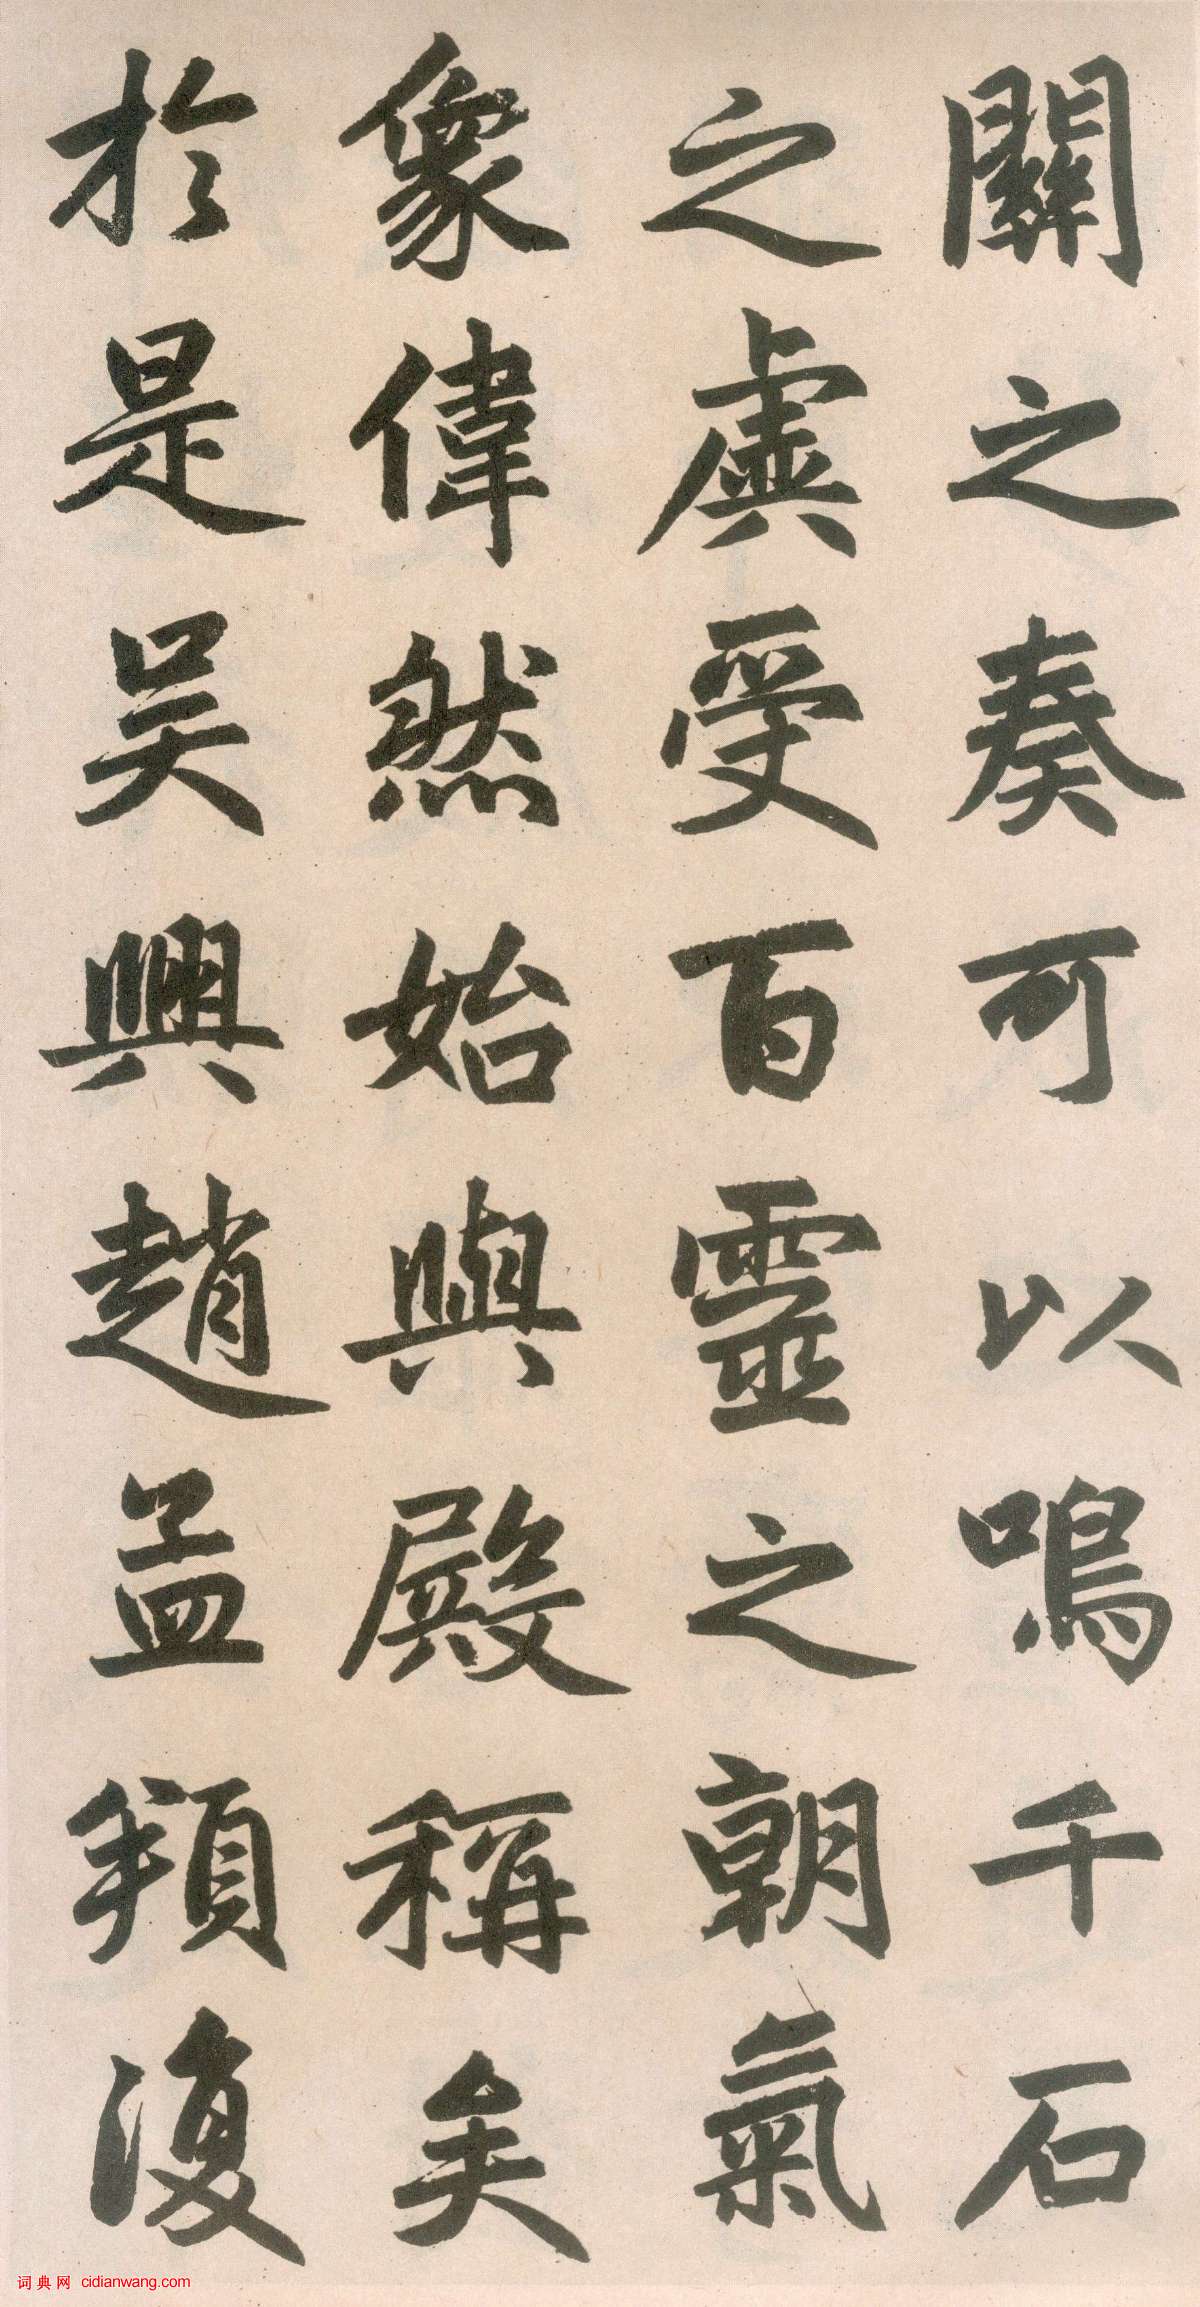 關之奏可以鳴千石
之虡受百靈之朝氣
象偉然始與殿稱矣
於是吳興趙孟頫復
词典网 cidianwang.com